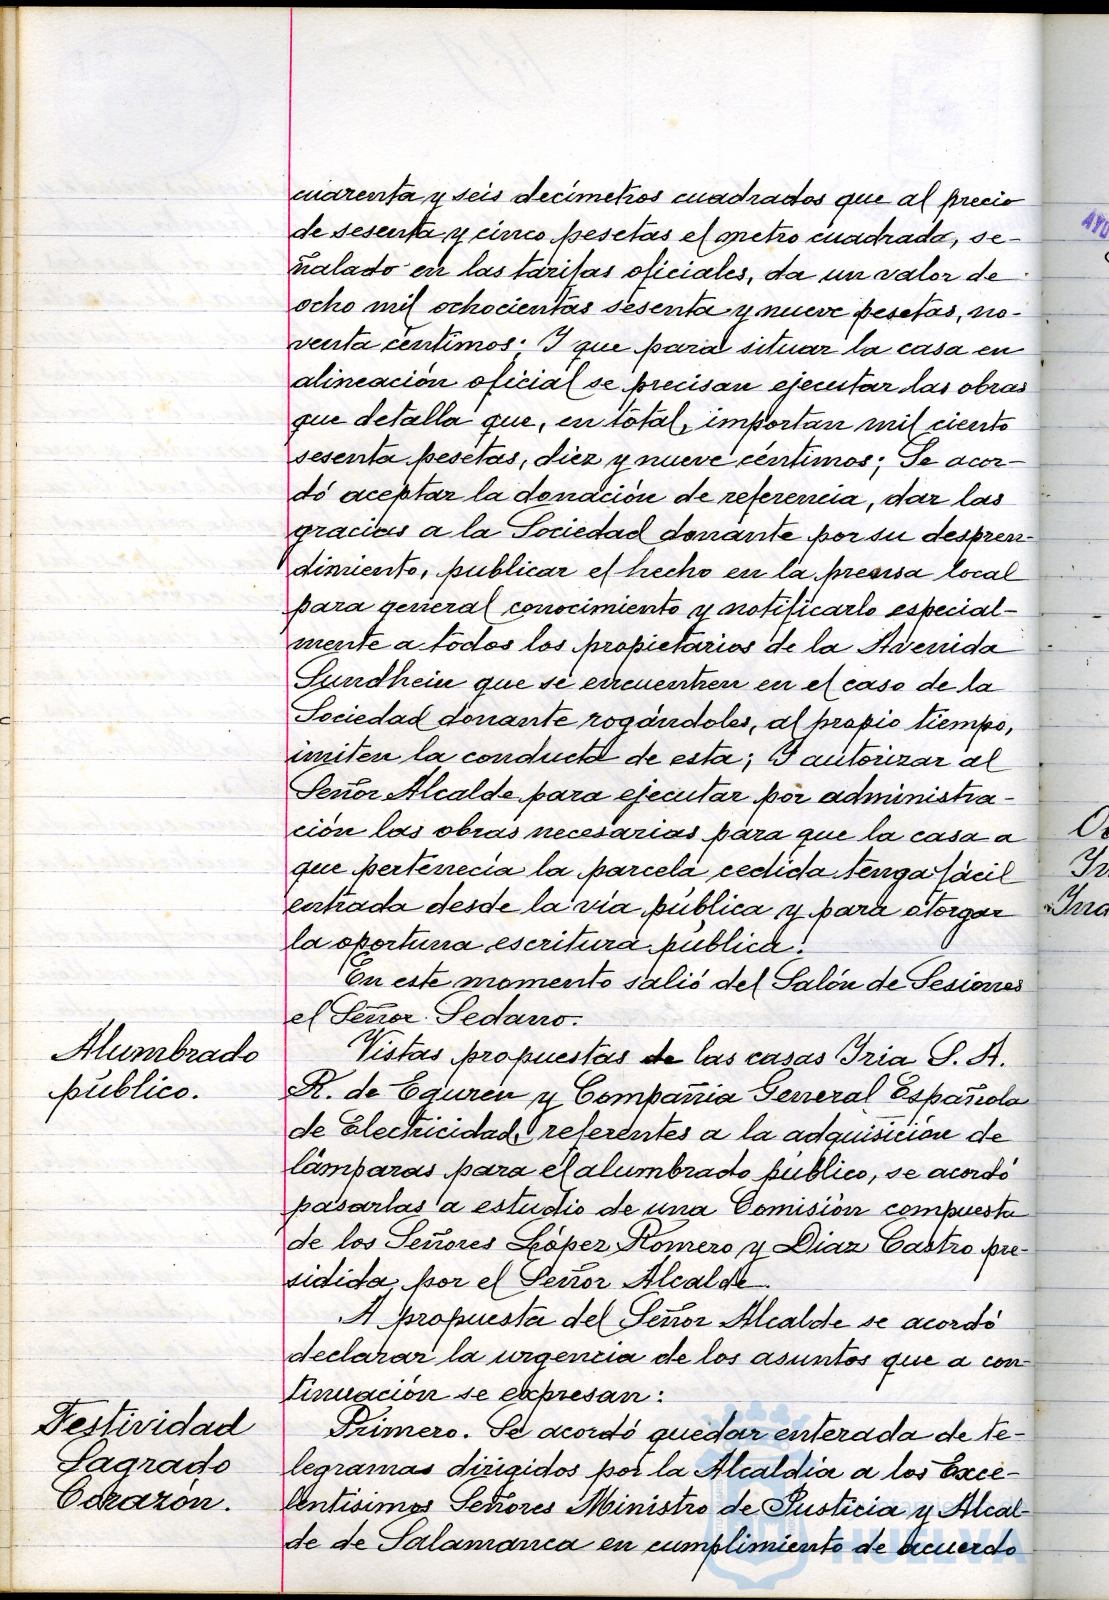 cuarenta y seis decímetros cuadrados que al precio
de sesenta y cinco pesetas el metro cuadrado, se-
ñalado en las tarifas oficiales, da un valor de
ocho mil ochocientas sesenta y nueve pesetas, no-
venta céntimos; Y que para situar la casa en
alineación oficial se precisan ejecutar las obras
que detalla que, en total, importan mil ciento
sesenta pesetas, diez y nueve céntimos; Se acor-
dó aceptar la donación de referencia, dar las
gracias a la Sociedad donante por su despren-
dimiento, publicar el hecho en la prensa local
para general conocimiento y notificarlo especial-
mente a todos los propietarios de la Avenida
Sundhein que se encuentren en el caso de la
Sociedad donante rogándoles, al propio tiempo,
imiten la conducta de esta; Y autorizar al
Señor Alcalde para ejecutar por administra-
ción las obras necesarias para que la casa a
que pertenecía la parcela cedida tenga fácil
entrada desde la vía pública y para otorgar
la oportuna escritura pública.
En este momento salió del Salón de Sesiones
el Señor Sedano.
Alumbrado
público.
Vistas propuestas de las casas Iria S. A.
R. de Eguren y Compañia General Española
de Electricidad, referentes a la adquisición de
lámparas para el alumbrado público, se acordó
pasarlas a estudio de una Comisión compuesta
de los Señores López Romero y Diaz Castro pre-
sidida por el Señor Alcalde.
A propuesta del Señor Alcalde se acordó
declarar la urgencia de los asuntos que a con-
tinuación se expresan:
Festividad
Sagrado
Corazón.
Primero. Se acordó quedar enterada de te-
legramas dirigidos por la Alcaldía a los Exce-
lentisimos Señores Ministro de Justicia y Alcal-
de de Salamanca en cumplimiento de acuerdo
HUELVA